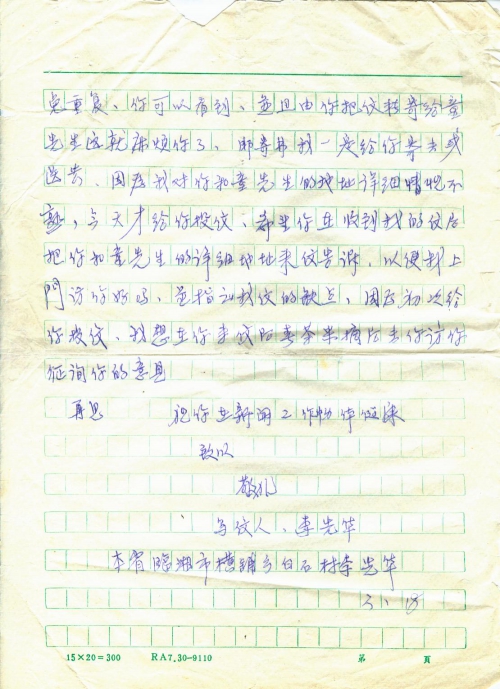 重复、你可以看到、并且由你把信转寄给童
先生这就麻烦你了、那等我一定给你寄去或
送去、因为我对你和童先生的地址详细情况不
熟，今天才给你投信，希望你在收到我的信后
把你和童先生的详细地址来信告诉，以便我上
門访你好吗、并指示我信的缺点，因为初次给
你投信、我想在你来
征询你的意見
再見 祝你在新闻工作
致以
敬礼
写信人、李先华
本省临湘市横铺乡白石村李先华
3、18
15×20=300 RA7.30-9110 第 頁